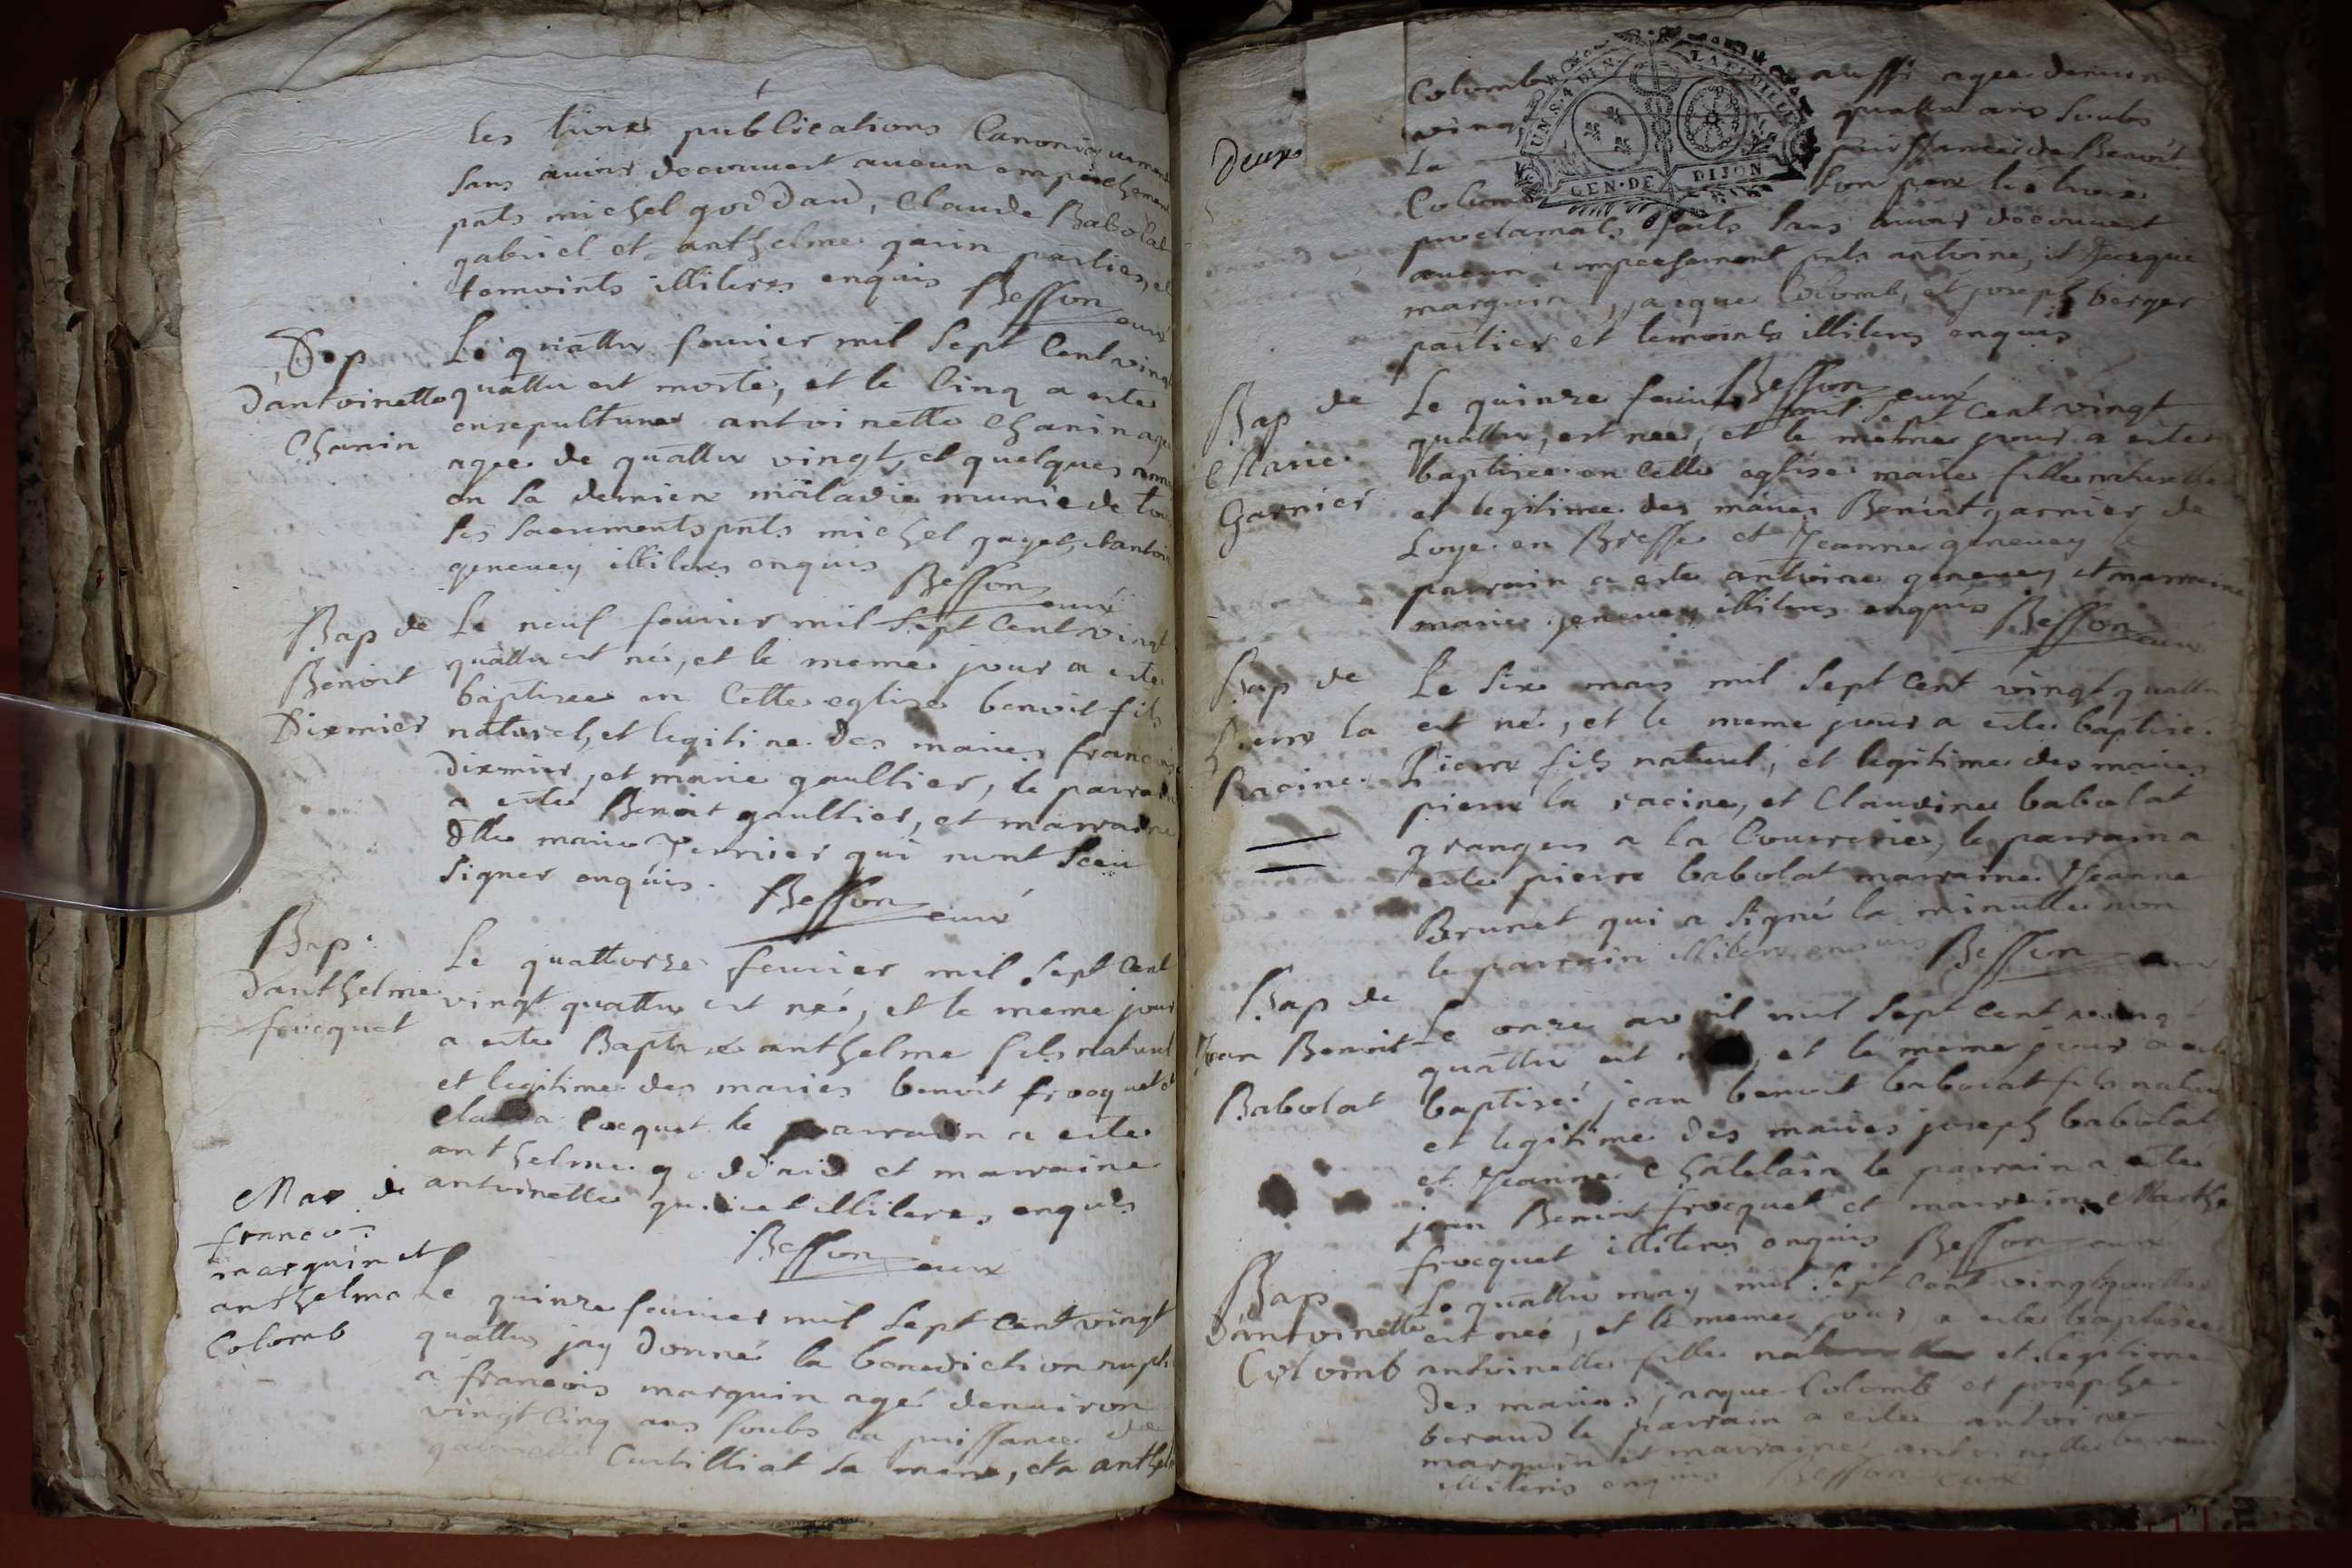 les trois publications Canoniquement
sans avoir decouvert aucun empeschement
pnts michel goddard, Claude Babolat
gabriel et anthelme garin parties, et
temoints illiteres enquis Besson curé
Sep
d'antoinette
Chanin
Le quattre fevrier mil sept Cent vingt
quattre est morte, et le cinq a este
ensepulturee antoinette Chanin
agee de quattre vingt, et quelques
en sa derniere maladie munie de tous
les sacrements pnts michel gayet, et antoine
genevey illiteres enquis Besson curé
Bap de
Benoit
Dixmier
Le neuf fevrier mil sept Cent vingt
quattre est né, et le meme jour a este
baptisee en Cette eglise benoit fils
naturel, et legitime des maries francois
dixmier, et marie gaultier, le parrain
a este Benoit gaultier, et marraine
dlle marie qui nont sceu
signer enquis. Besson curé
Bap.
d'anthelme
frocquet
Le quattorze fevrier mil sept Cent
vingt quattre est né, et le meme jour
a este Baptisé anthelme fils naturel
et legitime des maries benoit frocquet et
le parrain a este
anthelme et marraine
antoinette illiteres enquis
Besson curé
Mar de
francois
marguin et
anthelma
Colomb
Le quinze fevrier mil sept Cent vingt
quattre jay donné la benediction nupti
a francois marguin agé denviron
vingt Cinq ans soubs la puissance de
Curtilliat sa mere, et a anthelm
deux
Colomb aussi agee denviron
ving quattre ans soubs
la puissance de Benoit
Colomb son pere les trois
proclamats faits sans avoir decouvert
aucun empeschement pnts antoine, et
marguin, jacque Colomb, et joseph berger
parties et temoints illiteres enquis
Besson curé
Bap de
Marie
Garnier
Le quinze fevrier mil sept Cent vingt
quattre, est née, et le mesme jour a este
baptisee en Cette eglise marie fille naturelle
et legitime des maries Benoit garnier de
Loye en Bresse et Jeanne genevey le
parrain a este antoine genevey et marraine
marie genevey illiteres enquis Besson curé
Bap de
Pierre la
Racine
Le six mars mil sept Cent vingt quattre
est né, et le meme jour a este baptisé
Pierre fils naturel, et legitime des maries
pierre la racine, et Claudine babolat
grangers a la le parrain a
este pierre babolat marraine Jeanne
Brunet qui a signé la minutte non
le parrain illitere enquis Besson curé
Bap de
Jean Benoit
Babolat
Le onze avril mil sept Cent vingt
quattre est né, et le meme jour a este
baptisé jean benoit babolat fils naturel
et legitime des maries joseph babolat
et Jeanne Chatelain le parrain a este
jean Benoit frocquet et marraine Marthe
frocquet illiteres enquis Besson curé
Bap
d'antoinette
Colomb
Le quattre may mil sept Cent vingt quattre
est née, et le meme jour a este baptisée
antoinette fille naturelle et legitime
des maries jacque Colomb et josephe
beraud le parrain a este antoine
marguin et marraine antoinette beraud
illiteres enquis Besson curé
GEN·DE DIJON